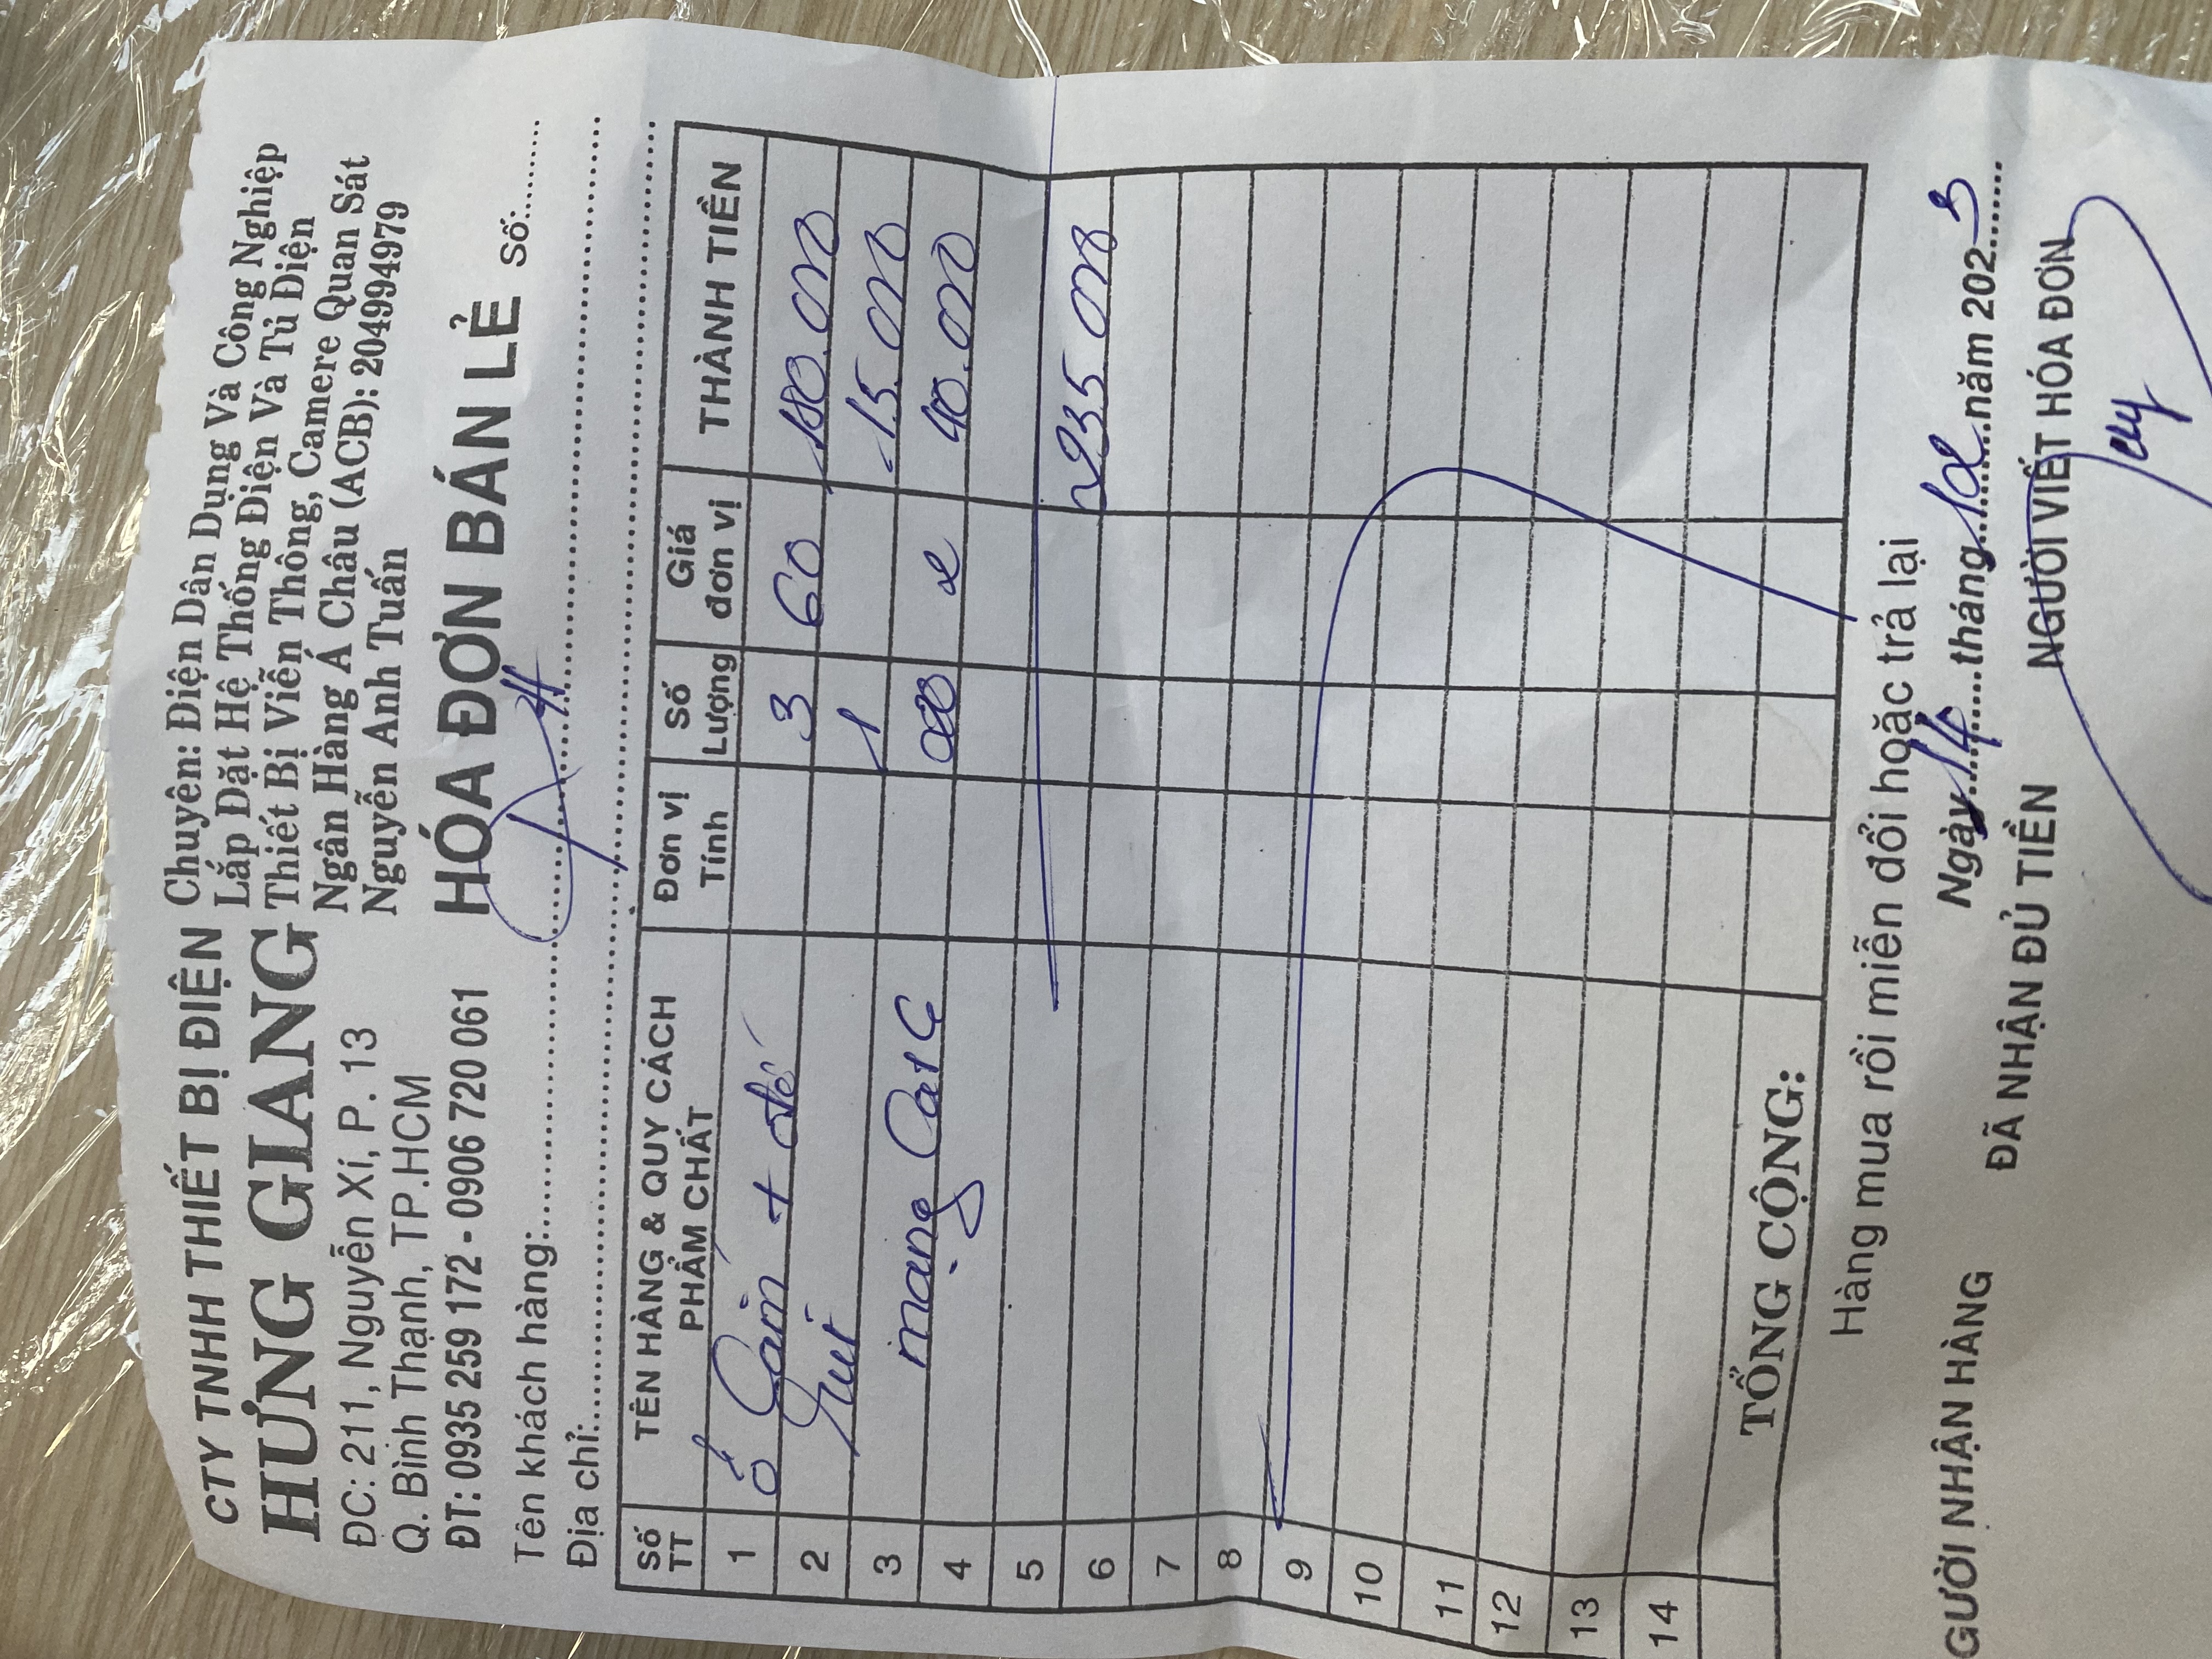 CTY TNHH THIẾT BỊ ĐIỆN
HƯNG GIANG
ĐC: 211, Nguyễn Xí, P. 13
Q. Bình Thạnh, TP.HCM
ĐT: 0935 259 172 - 0906 720 061
Chuyên: Điện Dân Dụng Và Công Nghiệp
Lắp Đặt Hệ Thống Điện Và Tủ Điện
Thiết Bị Viễn Thông, Camere Quan Sát
Ngân Hàng Á Châu (ACB): 204994979
Nguyễn Anh Tuấn
HÓA ĐƠN BÁN LẺ Số:.........
Tên khách hàng:
Địa chỉ:
Số TT TÊN HÀNG & QUY CÁCH PHẨM CHẤT Đơn vị Tính Số Lượng Giá đơn vị THÀNH TIỀN
1 ổ Cắm + đế 3 60 180.000
2 1 15.000
3 mạng Cat 6 20 2 40.000
4
5
6 235.000
7
8
9
10
11
12
13
14
TỔNG CỘNG:
Hàng mua rồi miễn đổi hoặc trả lại
Ngày 14 tháng 12 năm 2023
GƯỜI NHẬN HÀNG ĐÃ NHẬN ĐỦ TIỀN NGƯỜI VIẾT HÓA ĐƠN